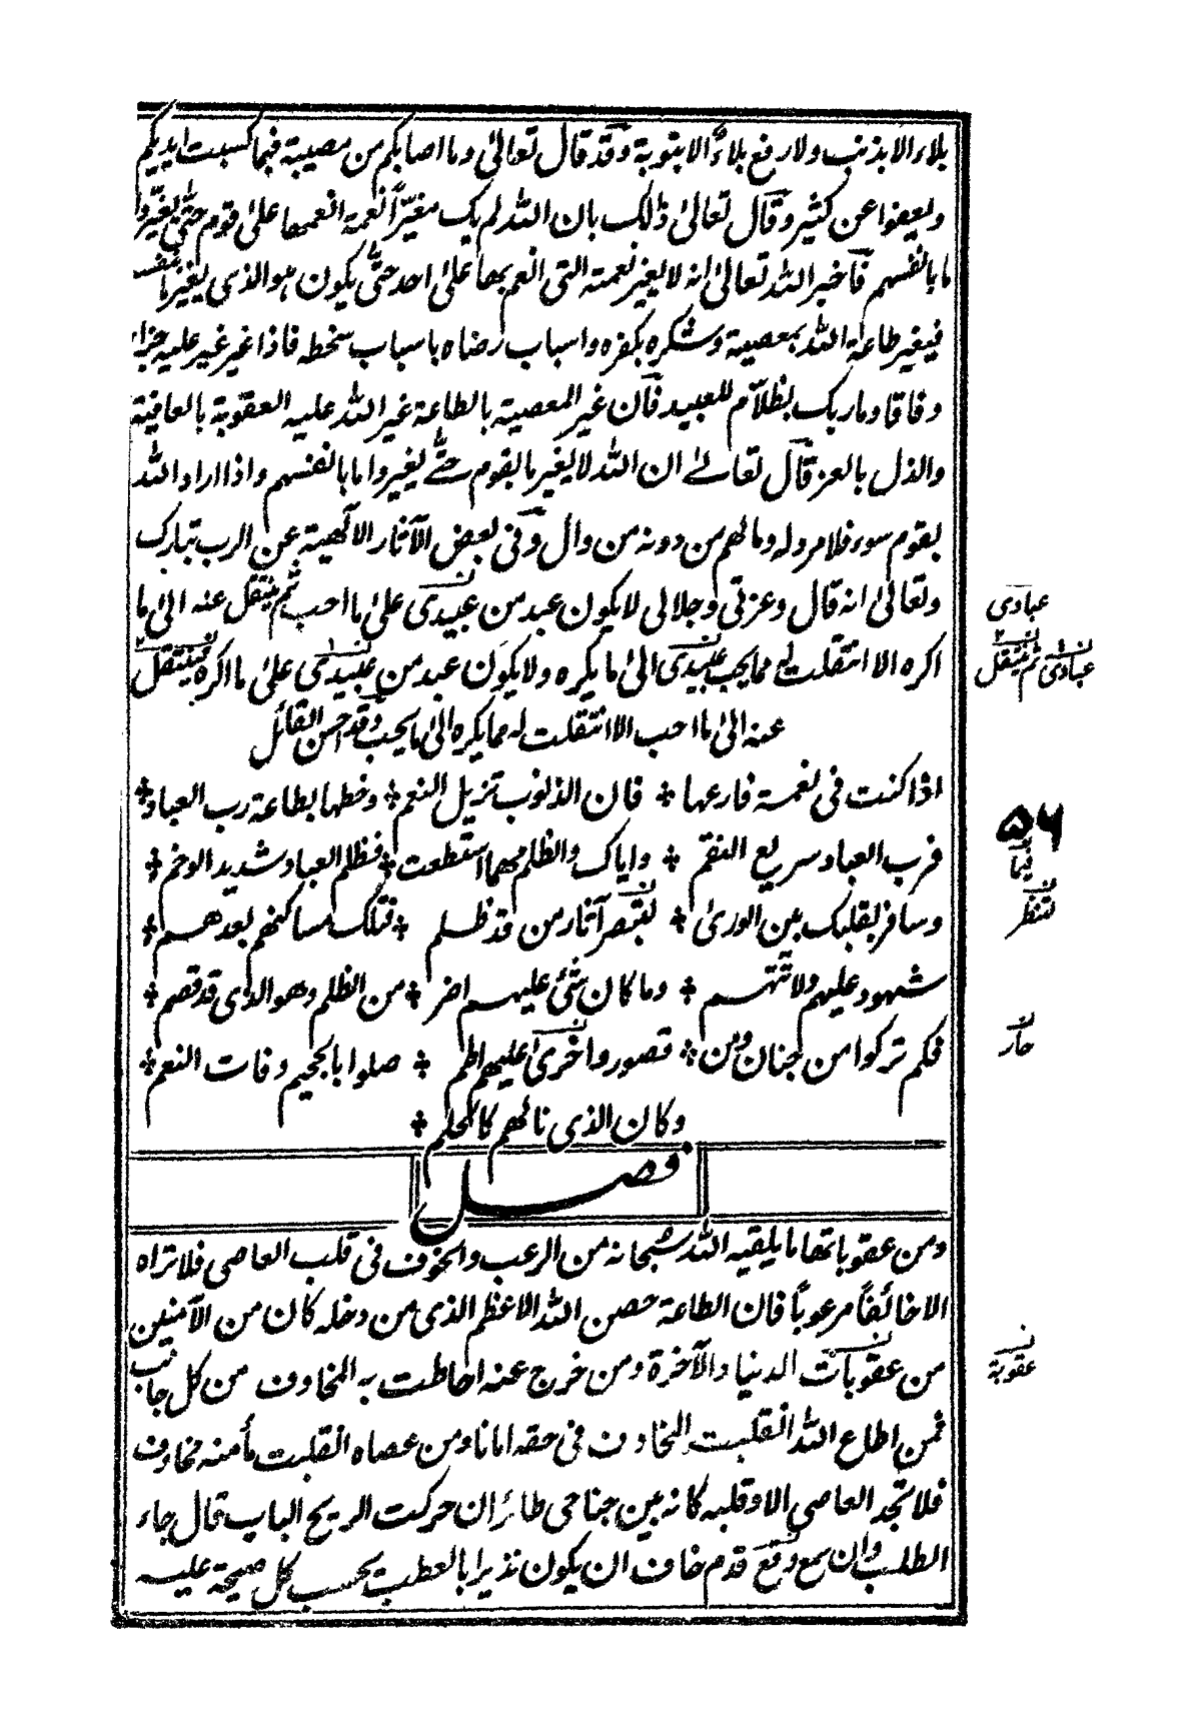 بلاء الا بذنب ولا رفع بلاء الا بتوبة وقد قال تعالى وما اصابكم من مصيبة فبما كسبت ايديكم
ويعفوا عن كثير وقال تعالى ذلك بان الله لم يك مغيرًا نعمة انعمها على قوم حتى يغيّروا
ما بانفسهم فاخبر الله تعالى انه لا يغير نعمته التى انعم بها على احد حتى يكون هو الذى يغير ما بنفسه
فيغير طاعة الله بمعصية وشكره بكفره واسباب رضاه باسباب سخطه فاذا غير غير عليه جزاء
وفاقا وما ربك بظلاّم للعبيد فان غير المعصية بالطاعة غير الله عليه العقوبة بالعافية
والذل بالعز قال تعالى ان الله لا يغير ما بقوم حتى يغيروا ما بانفسهم واذا اراد الله
بقوم سوء فلا مرد له وما لهم من دونه من وال وفى بعض الآثار الالٓهية عن الرب تبارك
وتعالى انه قال وعزتى وجلالى لا يكون عبد من عبيدى على ما احب ثم ينتقل عنه الى ما
اكره الا انتقلت له مما يحب عبيدى الى ما يكره ولا يكون عبد من عبيدى على ما اكره فينتقل
عنه الى ما احب الا انتقلت له مما يكره الى ما يحب وقد احسن القائل
اذا كنت فى نعمة فارعها ٭ فان الذنوب تزيل النعم ٭ وحطها بطاعة رب العباد ٭
فرب العباد سريع النقم ٭ واياك والظلم مهما استطعت ٭ فظلم العباد شديد الوخم ٭
وسافر بقلبك بين الورى ٭ لتبصر آثار من قد ظلم ٭ فتلك مساكنهم بعدهم ٭
شهود عليهم ولا تتهم ٭ وما كان شئ عليهم اضر ٭ من الظلم وهو الذى قد قصم ٭
فكم تركوا من جنان ومن ٭ قصور واخرى عليهم اطم ٭ صلوا بالجحيم وفات النعم ٭
وكان الذى نالهم كالحلم ٭
فصل
ومن عقوباتها ما يلقيه الله سبحانه من الرعب والخوف فى قلب العاصى فلا تراه
الا خائفًا مرعوبًا فان الطاعة حصن الله الاعظم الذى من دخله كان من الآمنين
من عقوبات الدنيا والآخرة ومن خرج عنه احاطت به المخاوف من كل جانب
فمن اطاع الله انقلبت المخاوف فى حقه امانا ومن عصاه انقلبت مأمنه مخاوف
فلا تجد العاصى الا وقلبه كانه بين جناحى طائر ان حركت الريح الباب قال جاء
الطلب وان سمع وقع قدم خاف ان يكون نذيرا بالعطب يحسب كل صيحة عليه
عبادى
عبادى ثم ينتقل
٥٦
لتنظر
عقوبة